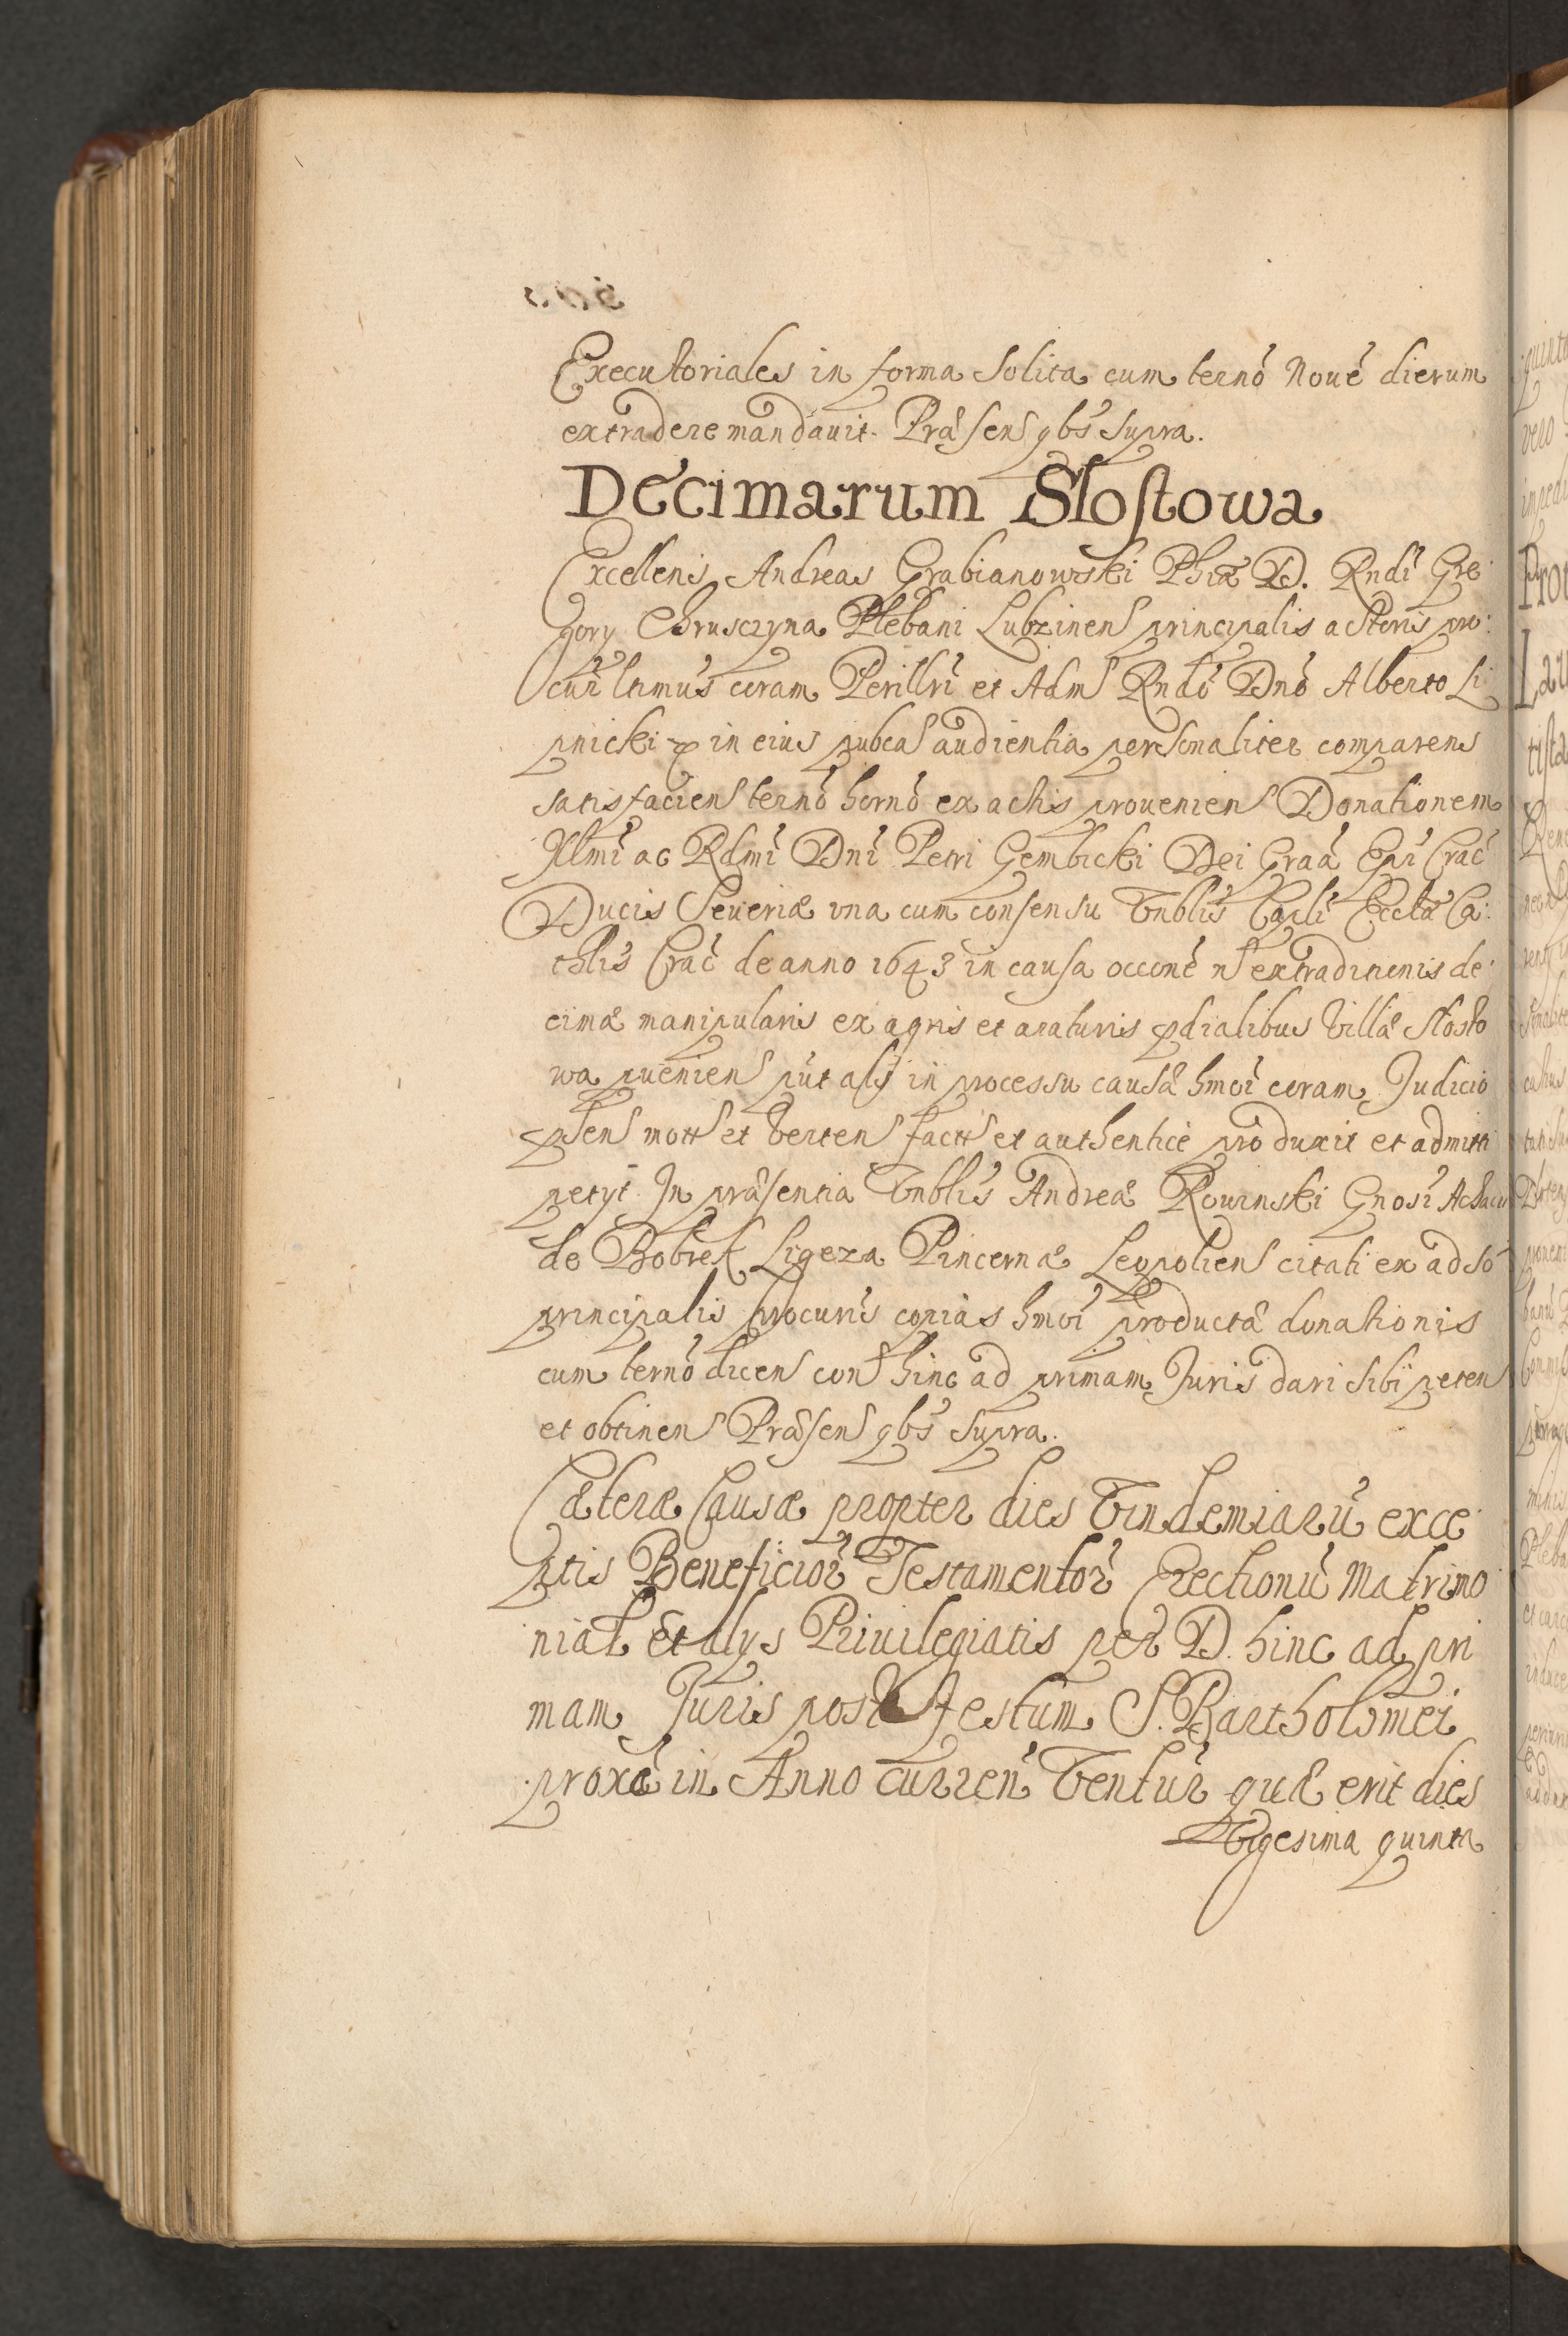 Executoriales in forma solita cum termo Noue dierum
extradere mandauit. Præsen qbs supra.
Decimarum Slostowa
Excellens Andreas Grabianowski Phiæ D. Rndi Gre
gory Chrusczyna Plebani Lubzinens principalis actoris pro
curi ltimus coram Perillri et Adm Rndo Dno Alberto Li
pnicki in eius pubca audientia personaliter comparens
satisfaciens termo horno ex actis prouenien Donationem
Illmi ac Rdmi Dni Petri Gembicki Dei Graa Epi Crac
Ducis Seueriæ vna cum consensu Vnblis Capli Ecclæ Ca
thlis Crac de anno 1643 in causa occone extradinonis de
cimæ manipularis ex agris et araturis pdialibus Villæ Slosto
wa puenien put als in processu causæ hmoi coram Judicio
psen mott et verten factt et authentice produxit et admitti
petyt. In præsentia Vnblis Andreæ Rowinski Gnosi Achacii
de Bobrek Ligeza Pincernæ Leopolien citati ex adso
principalis procuris copias hmoi productæ donationis
cum termo dicen con hinc ad primam Juris dari sibi peten
et obtinen Præsen qbs supra.
Cæteræ Causæ propter dies Vindemiaru exce
ptis Beneficior Testamentor Erectionu Matrimo
nial et alys Priuilegiatis per D. hinc ad pri
mam Juris post Festum S. Bartholomei
proxe in Anno curren Ventur quæ erit dies
Vigesima quinta